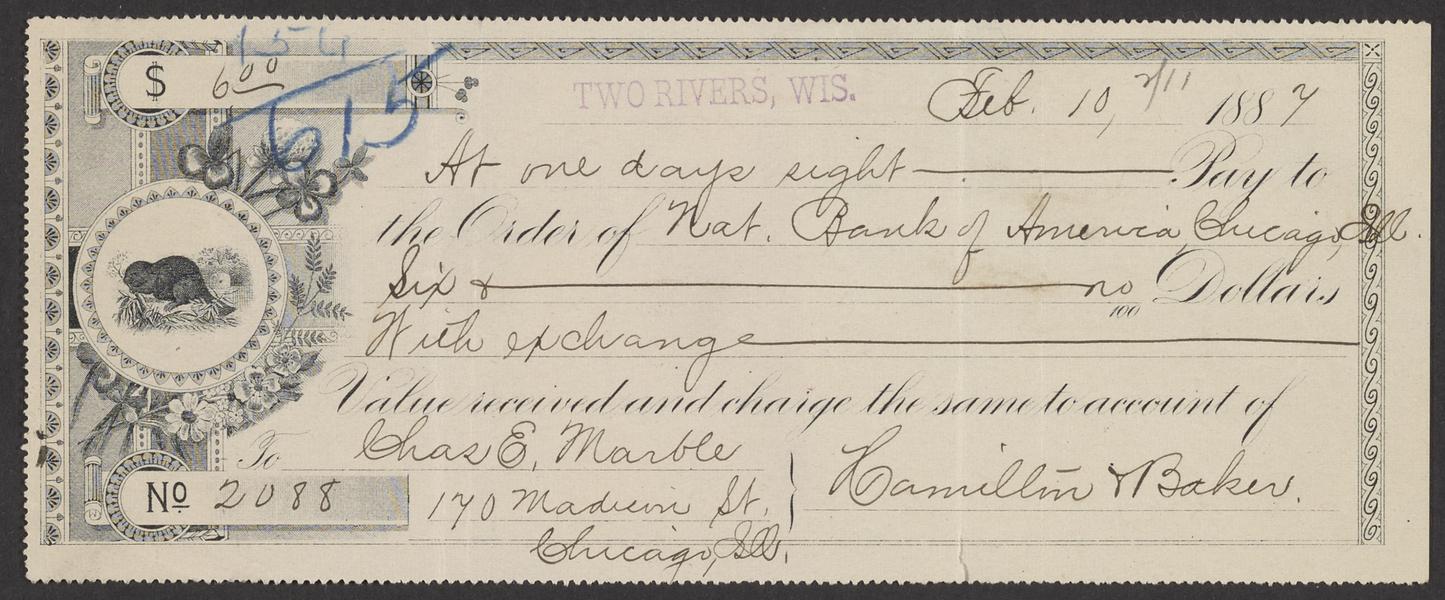 154
$ 6 00
615
TWO RIVERS, WIS. Feb. 10, 2/11 1887
At one days sight Pay to
the Order of Nat. Bank of America, Chicago, Ill.
Six & no/100 Dollars
With exchange
Value received and charge the same to account of
To Chas E. Marble
No 2088 170 Madison St. Hamilton & Baker.
Chicago, Ill.